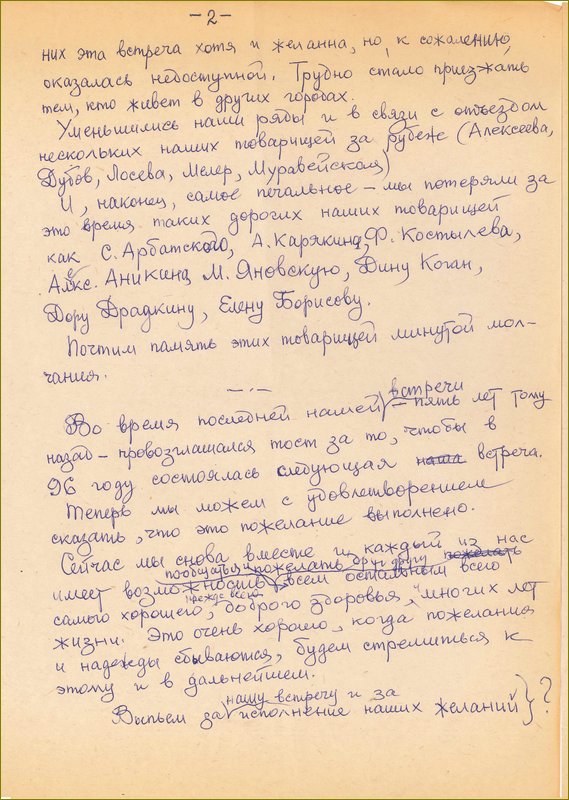 -2-
них эта встреча хотя и желанна, но, к сожалению,
оказалась недоступной. Трудно стало приезжать
тем, кто живет в других городах.
Уменьшились наши ряды и в связи с отъездом
нескольких наших товарищей за рубеж (Алексеева,
Дубов, Лосева, Мелер, Муравейская)
И, наконец, самое печальное – мы потеряли за
это время таких дорогих наших товарищей
как С. Арбатского, А. Карякина, Ф. Костылева,
Алекс. Аникина М. Яновскую, Дину Коган,
Дору Драдкину, Елену Борисову.
Почтим память этих товарищей минутой мол-
чания.
—·—
встречи
Во время последней нашей – пять лет тому
назад – провозглашался тост за то, чтобы в
96 году состоялась следующая наша встреча.
Теперь мы можем с удовлетворением
сказать, что это пожелание выполнено.
Сейчас мы снова вместе и каждый из нас
пообщаться и пожелать друг другу пожелать
имеет возможность всем остальным всего
прежде всего
самого хорошего, доброго здоровья, многих лет
жизни. Это очень хорошо, когда пожелания
и надежды сбываются, будем стремиться к
этому и в дальнейшем.
нашу встречу и за
Выпьем за исполнение наших желаний } ?